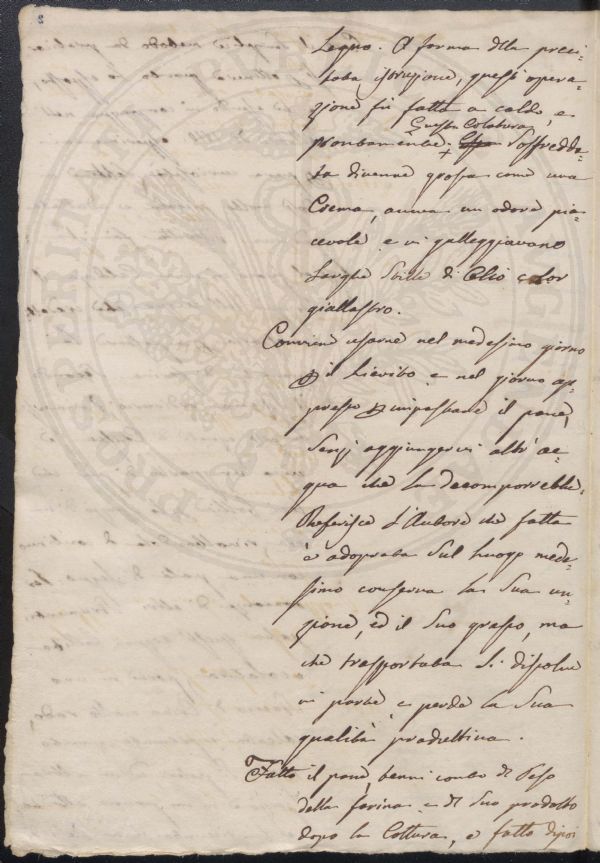 2
Legno. A forma della preci-
tata istruzione, quest'opera-
zione fù fatta a caldo, e
prontamente. + Questa Colatura soffredda-
ta divenne grossa come una
Crema, aveva un odore pia-
cevole e vi galleggiavano
larghe stille di Olio color
giallastro.
Conviene usarne nel medesimo giorno
il Lievito e nel giorno ap-
presso impastare il pane,
senz' aggiungervi altr' ac-
qua che la decomporrebbe.
Riferisce l'Autore che fatta
e adoprata sul luogo mede-
simo conserva la sua un-
zione, ed il suo grasso, ma
che trasportata si dissolve
in parte e perde la sua
qualità produttiva.
Fatto il pane, tenni conto di Peso
della farina e di suo prodotto
dopo la Cottura, e fatto dipoi